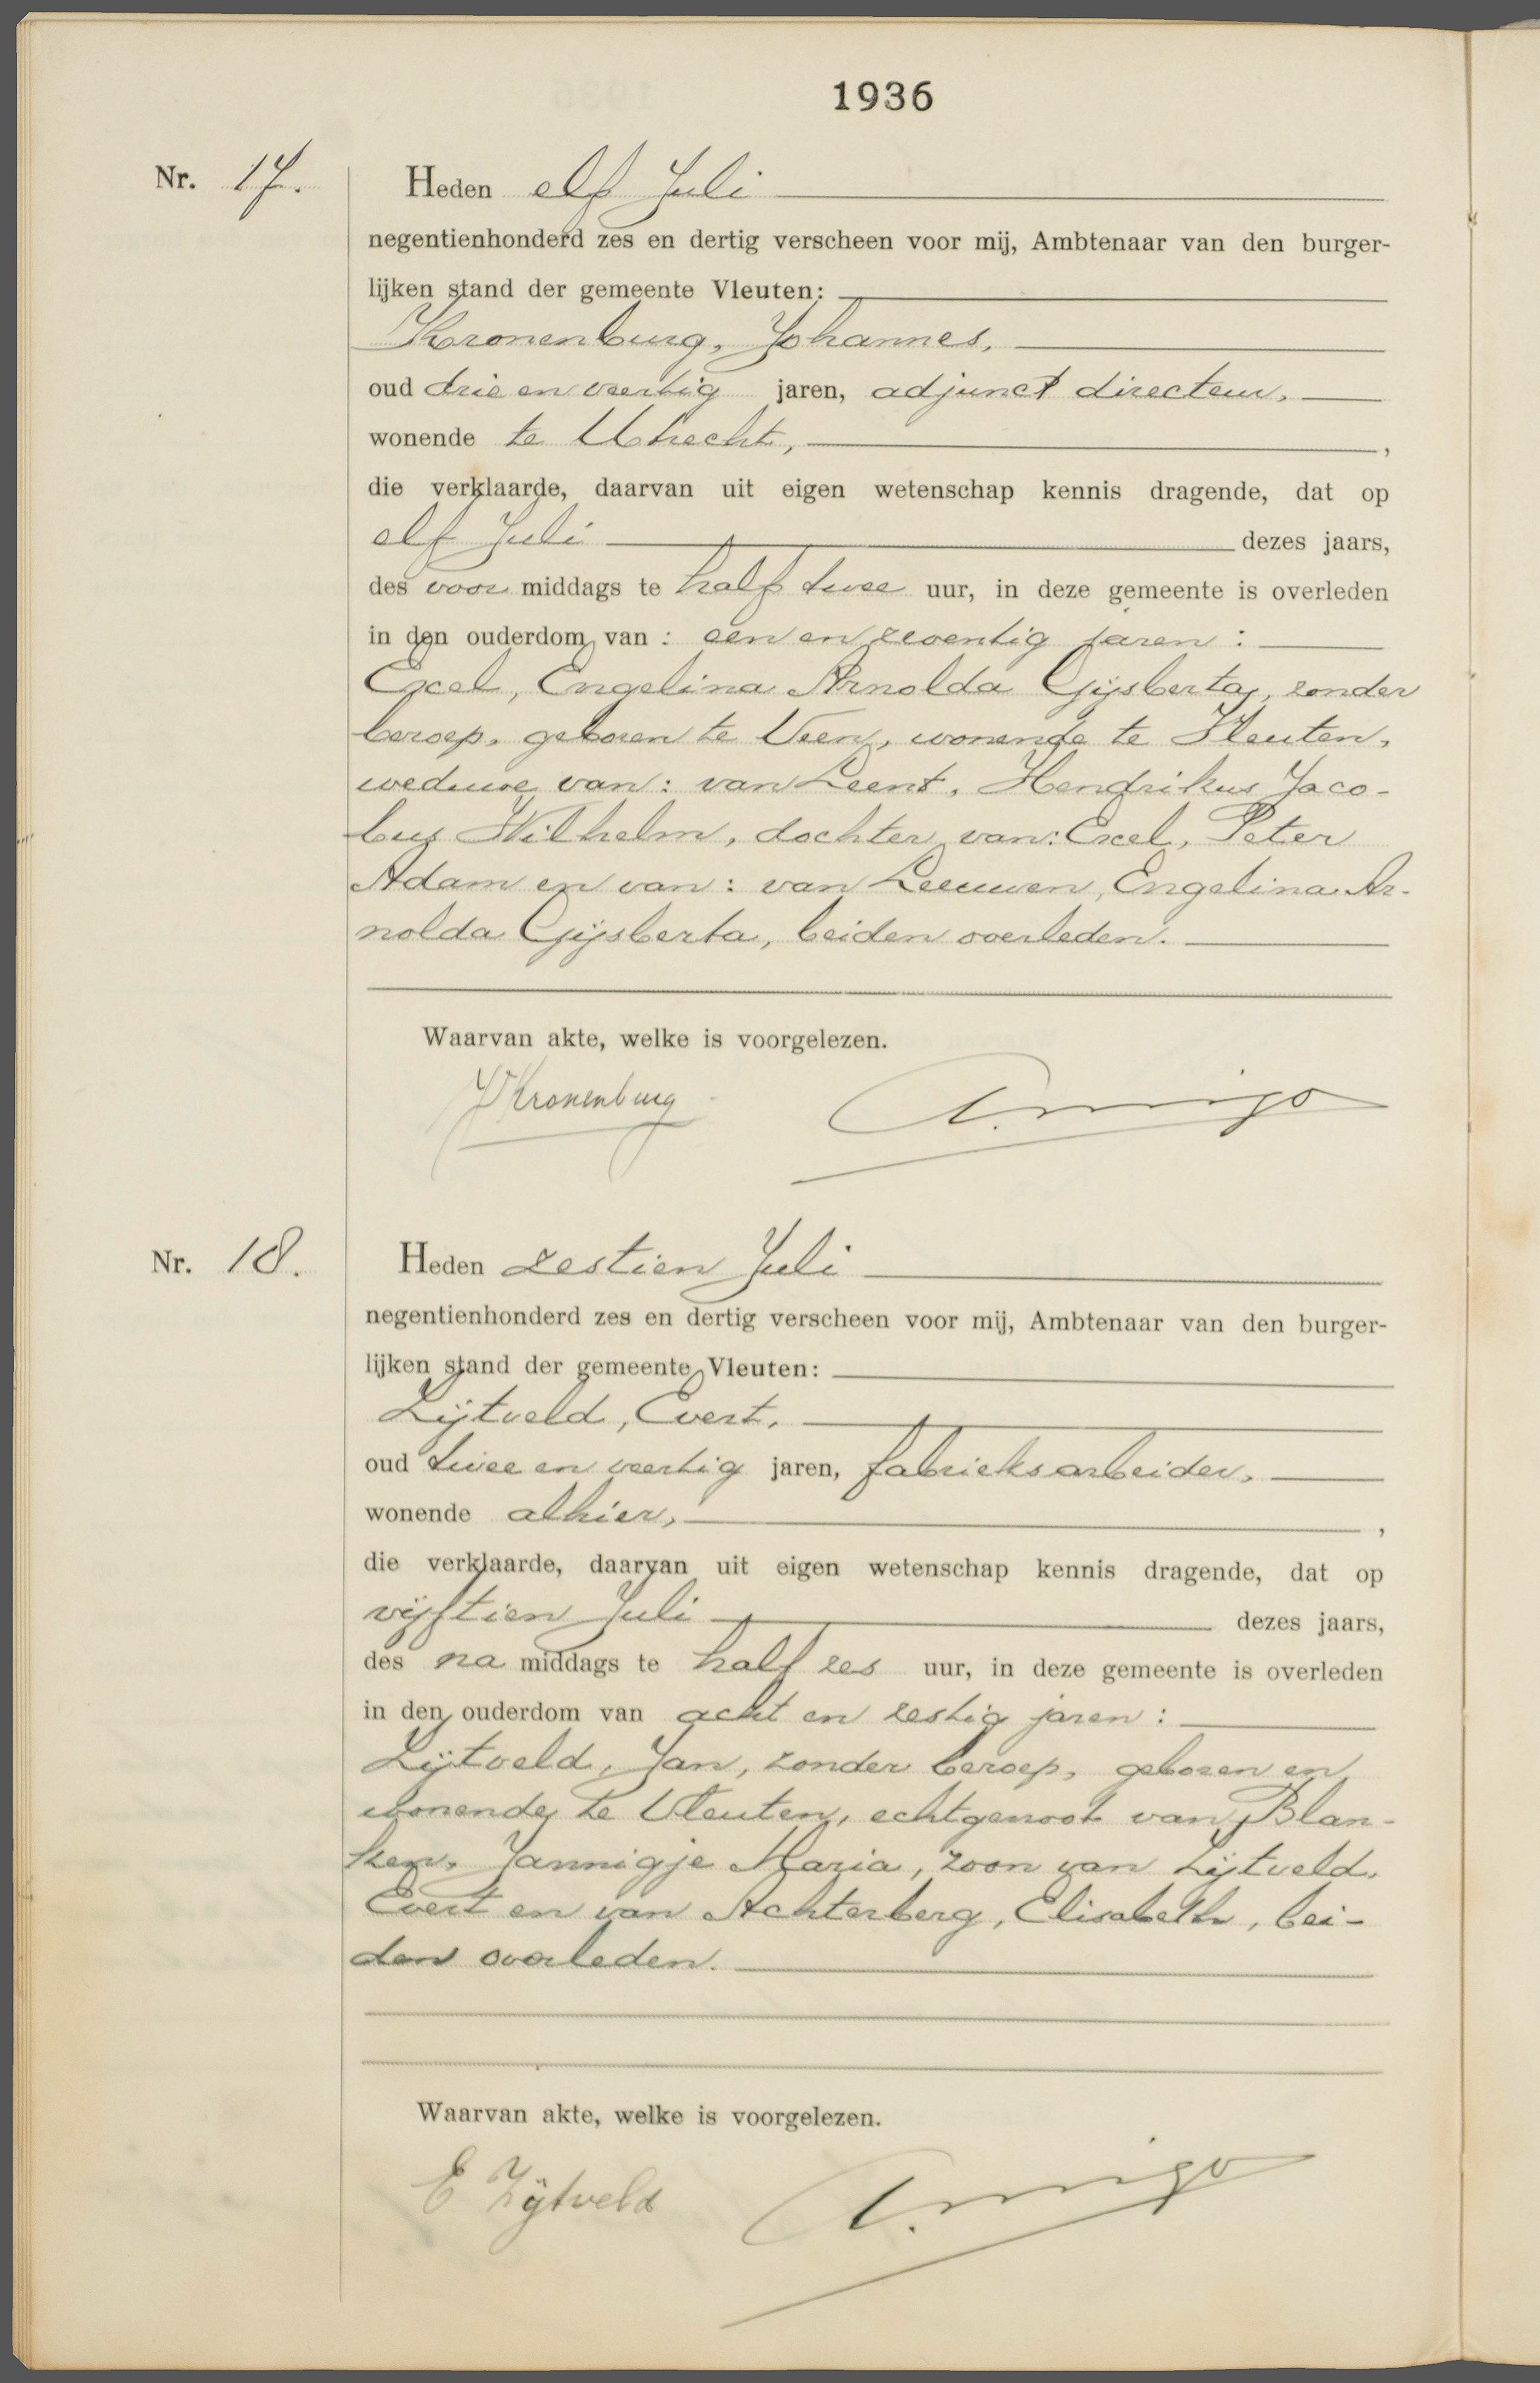 1936
Nr. 17.
Heden elf Juli
negentienhonderd zes en dertig verscheen voor mij, Ambtenaar van den burger-
lijken stand der gemeente Vleuten:
Kronenburg, Johannes,
oud drie en veertig jaren, adjunct directeur,
wonende te Utrecht, ,
die verklaarde, daarvan uit eigen wetenschap kennis dragende, dat op
elf Juli dezes jaars,
des voor middags te half twee uur, in deze gemeente is overleden
in den ouderdom van : een en zeventig jaren :
Excel, Engelina Arnolda Gijsberta, zonder
beroep, geboren te Veen, wonende te Vleuten,
weduwe van: van Leent, Hendrikus Jaco-
bus Wilhelm, dochter van: Excel, Peter
Adam en van: van Leeuwen, Engelina Ar-
nolda Gijsberta, beiden overleden.
Waarvan akte, welke is voorgelezen.
J Kronenburg
Nr. 18.
Heden zestien Juli
negentienhonderd zes en dertig verscheen voor mij, Ambtenaar van den burger-
lijken stand der gemeente Vleuten:
Zijtveld, Evert,
oud twee en veertig jaren, fabrieksarbeider,
wonende alhier, ,
die verklaarde, daarvan uit eigen wetenschap kennis dragende, dat op
vijftien Juli dezes jaars,
des na middags te half zes uur, in deze gemeente is overleden
in den ouderdom van acht en zestig jaren :
Zijtveld, Jan, zonder beroep, geboren en
wonende te Vleuten, echtgenoot van Blan-
ken, Jannigje Maria, zoon van Zijtveld,
Evert en van Achterberg, Elisabeth, bei-
den overleden.
Waarvan akte, welke is voorgelezen.
E Zijtveld